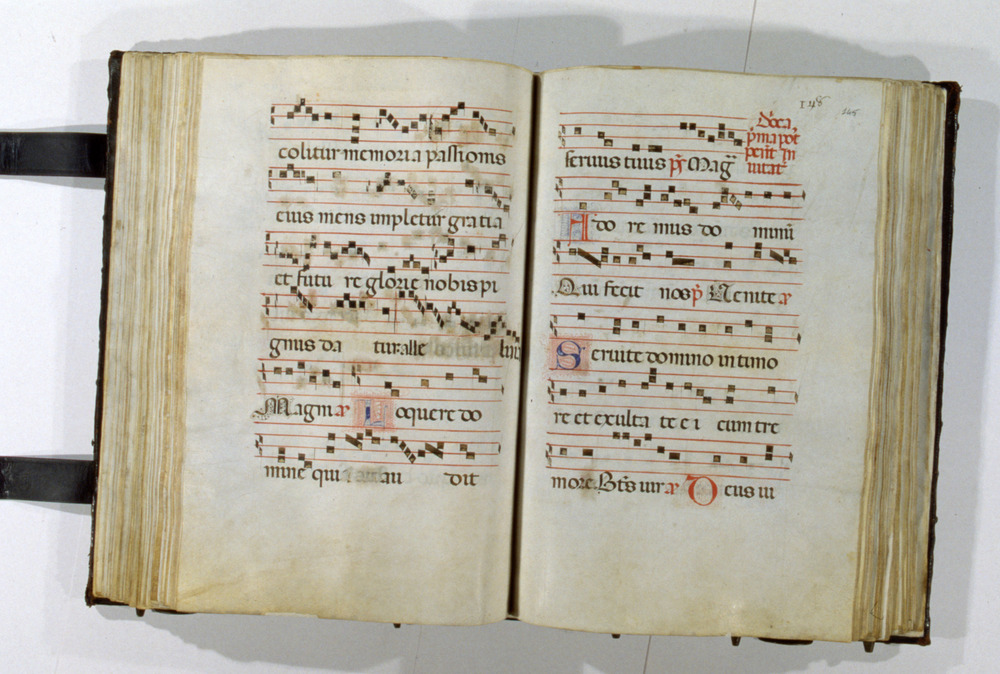 colitur memoria passionis
eius mens impletur gratia
et futu re glorie nobis pi
gnus da tur alle
Magni ae Loquere do
mine qui au dit
148
145
seruus tuus ps Mag
Dnica
A do re mus do minū
Qui fecit nos ps Uenite ae
Seruite domino in timo
re et exulta te e i cum tre
more. Bts uir ae Deus iu